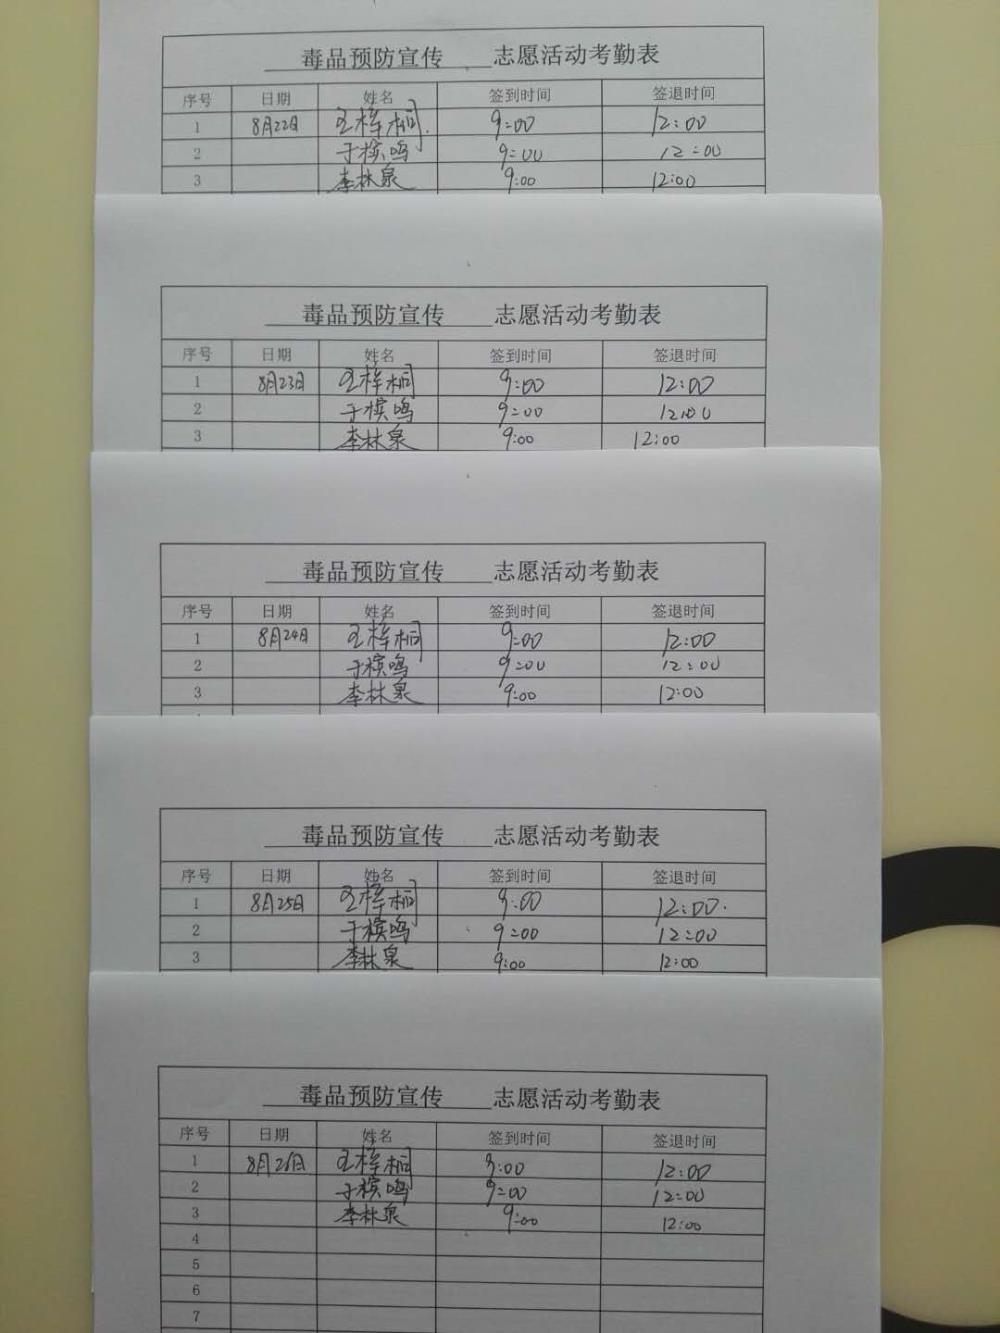 毒品预防宣传 志愿活动考勤表
序号 日期 姓名 签到时间 签退时间
1 8月22日 王梓桐 9:00 12:00
2 于槟鸣 9:00 12:00
3 李林泉 9:00 12:00
毒品预防宣传 志愿活动考勤表
序号 日期 姓名 签到时间 签退时间
1 8月23日 王梓桐 9:00 12:00
2 于槟鸣 9:00 12:00
3 李林泉 9:00 12:00
毒品预防宣传 志愿活动考勤表
序号 日期 姓名 签到时间 签退时间
1 8月24日 王梓桐 9:00 12:00
2 于槟鸣 9:00 12:00
3 李林泉 9:00 12:00
毒品预防宣传 志愿活动考勤表
序号 日期 姓名 签到时间 签退时间
1 8月25日 王梓桐 9:00 12:00
2 于槟鸣 9:00 12:00
3 李林泉 9:00 12:00
毒品预防宣传 志愿活动考勤表
序号 日期 姓名 签到时间 签退时间
1 8月26日 王梓桐 9:00 12:00
2 于槟鸣 9:00 12:00
3 李林泉 9:00 12:00
4
5
6
7